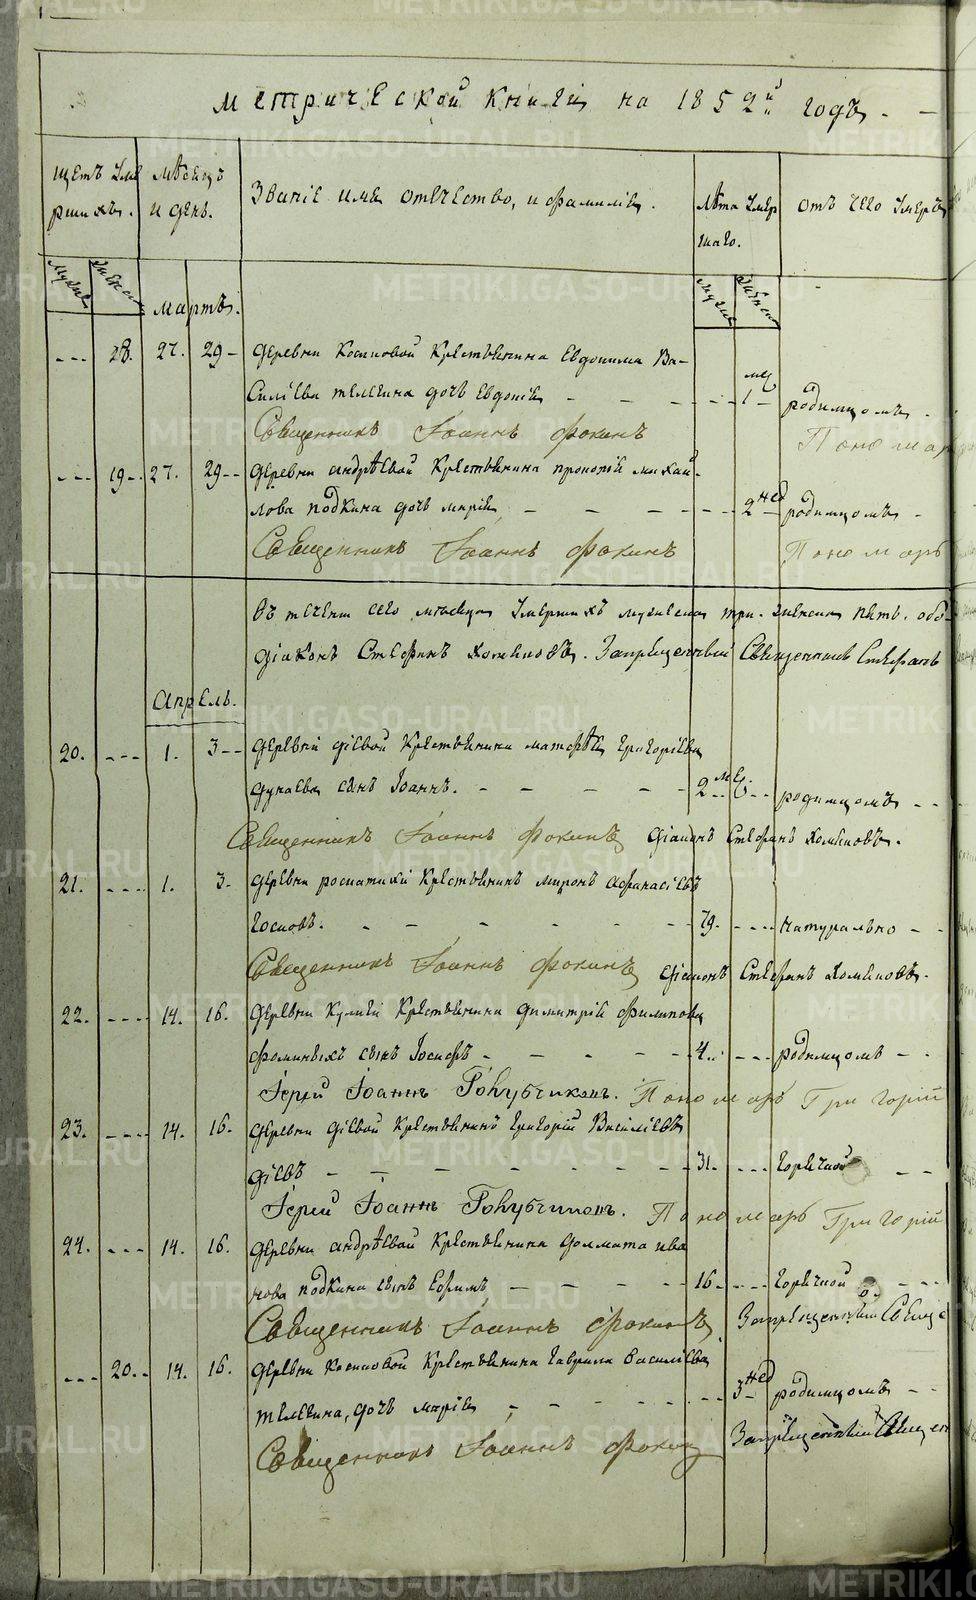 метрической книги на 1852й годъ.
щетъ уме месецъ Званіе имя отечество, и фамилія. лѣта умер отъ чего умеръ
рших. и день. шаго.
мужие женск мужие женск
мартъ.
28. 27. 29 деревни Крестьянина Евдокима Ва-
силіева телегина дочь Евдокія 1 мц родимцомъ
Священникъ Іоаннъ Фокинъ Пономарь
19 27. 29 деревни андрѣевой Крестьянина прокопія михай-
лова подкина дочь марія 2 нед родимцомъ
Священникъ Іоаннъ Фокинъ Пономарь
въ теченіи сего месяца умершихъ мужеска три. женска пять. обо-
діаконъ Стефанъ Хомяковъ. Запрещенный Священникъ Стефанъ
Апрель.
20. 1. 3 деревни діевой Крестьянина матфѣя григоріева
дунаева сынъ Іоаннъ. 2 ме. родимцомъ
Священникъ Іоаннъ Фокинъ діаконъ Стефанъ Хомяковъ.
21. 1. 3. деревни Крестьянинъ миронъ афанасіевъ
79. натурально
Священникъ Іоаннъ Фокинъ діаконъ Стефанъ Хомяковъ.
22. 14. 16. деревни Кулиги Крестьянина димитрія филипова
фоминыхъ сынъ Іосифъ 4. родимцомъ
Іерей Іоаннъ Голубчиковъ. Пономарь Григорій
23. 14. 16. деревни діевой Крестьянинъ григорій Василіевъ
діевъ 31. горячкой
Іерей Іоаннъ Голубчиковъ. Пономарь Григорій
24. 14. 16. деревни андрѣевой Крестьянина долмата ива
нова подкина сынъ Ефимъ 16. горячкой
Священникъ Іоаннъ Фокинъ Запрещенный Свяще
20. 14. 16. деревни Крестьянина гаврила василіева
телегина, дочь марія 3 нед родимцомъ
Священникъ Іоаннъ Фокинъ Запрещенный Священ
METRIKI.GASO-URAL.RU